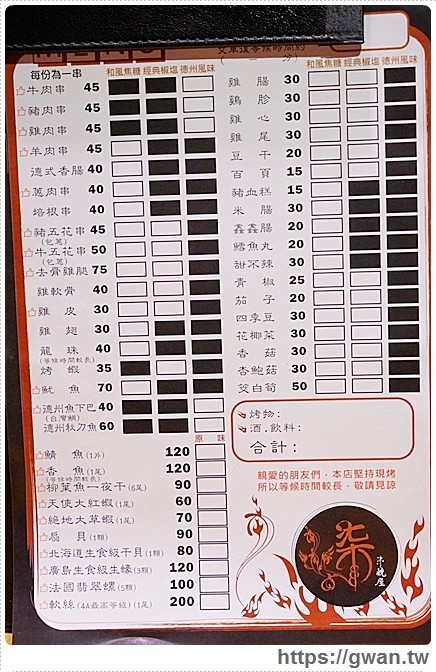 MENU
交單後等候時間約
分)
每份為一串
和風焦糖 經典椒塩 德州風味
牛肉串 45
豬肉串 45
雞肉串 45
羊肉串 45
德式香腸 40
蔥肉串 40
培根串 40
豬五花串 45
(包蔥)
牛五花串 50
(包蔥)
去骨雞腿 75
雞軟骨 40
雞皮 30
雞翅 30
龍珠 40
(等候時間較長)
烤蝦 35
魷魚 70
德州魚下巴 40
(台灣鯛)
德州秋刀魚 60
原味
鯖魚(1片) 120
香魚(1尾) 120
(等候時間較長)
柳葉魚一夜干(6尾) 90
天使大紅蝦(1尾) 60
絕地大草蝦(1尾) 70
扇貝(1顆) 90
北海道生食級干貝(1顆) 80
廣島生食級生蠔(3顆) 120
法國翡翠螺(5顆) 100
軟絲(4A最高等級)(1尾) 200
和風焦糖 經典椒塩 德州風味
雞腸 30
雞胗 30
雞心 30
雞尾 30
豆干 20
百頁 15
豬血糕 15
米腸 30
鑫鑫腸 20
鱈魚丸 20
甜不辣 30
青椒 25
茄子 20
四季豆 30
花椰菜 30
香菇 30
杏鮑菇 30
茭白筍 50
烤物:
酒.飲料:
合計:
親愛的朋友們,本店堅持現烤
所以等候時間較長,敬請見諒
柒串
木燒屋
https://gwan.tw